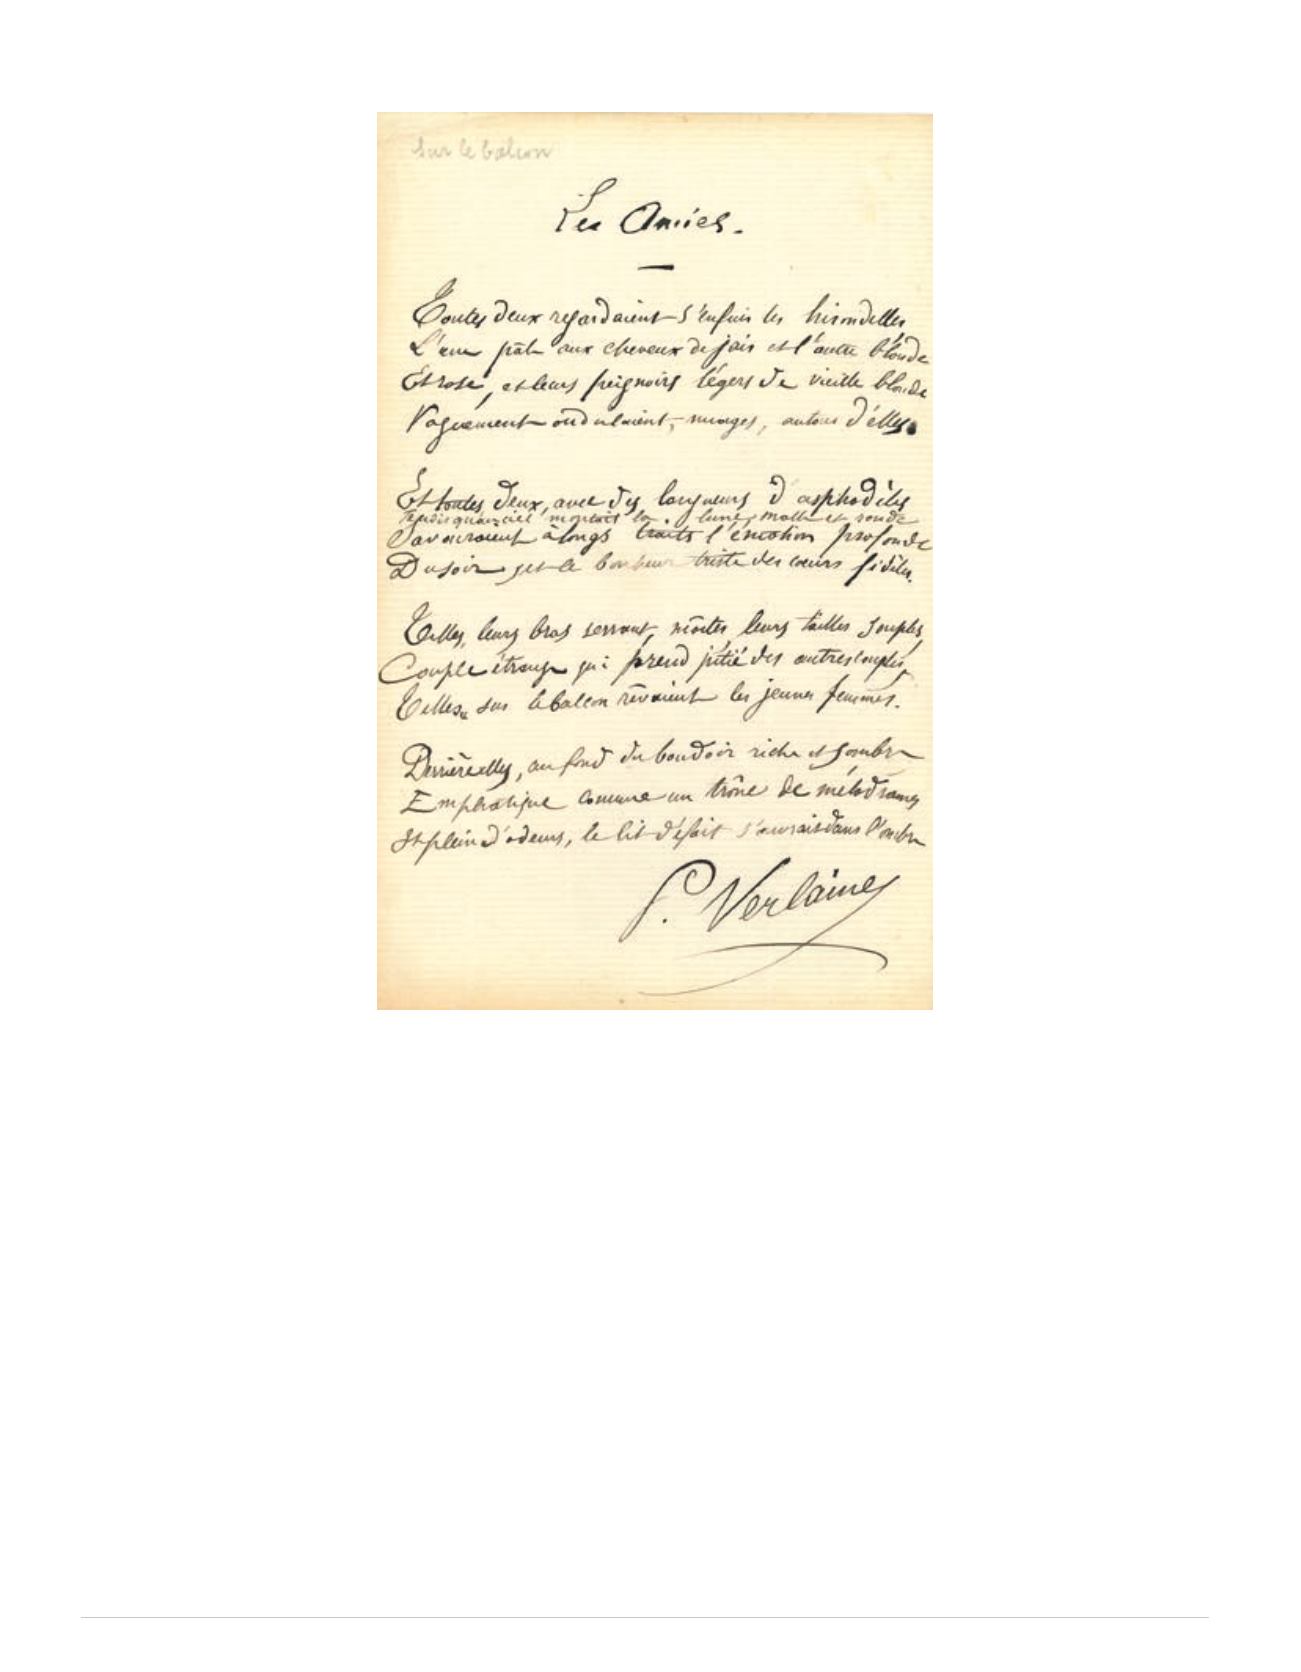 Sur le balcon
Les Amies.
Toutes deux regardaient s'enfuir les hirondelles
L'une pâle aux cheveux de jais et l'autre blonde
Et rose, et leurs peignoirs légers de vieille blonde
Vaguement ondulaient, nuages, autour d'elles.
Et toutes deux, avec des langueurs d'asphodèles
Tandis qu'au ciel montait la lune, molle et ronde
Savouraient à longs traits l'émotion profonde
Du soir, et le bonheur triste des cœurs fidèles.
Telles, leurs bras serrant, moites leurs tailles souples,
Couple étrange qui prend pitié des autres couples,
Telles, sur le balcon rêvaient les jeunes femmes.
Derrière elles, au fond du boudoir riche et sombre
Emphatique comme un trône de mélodrames
Et plein d'odeurs, le lit défait s'ouvrait dans l'ombre
P. Verlaine